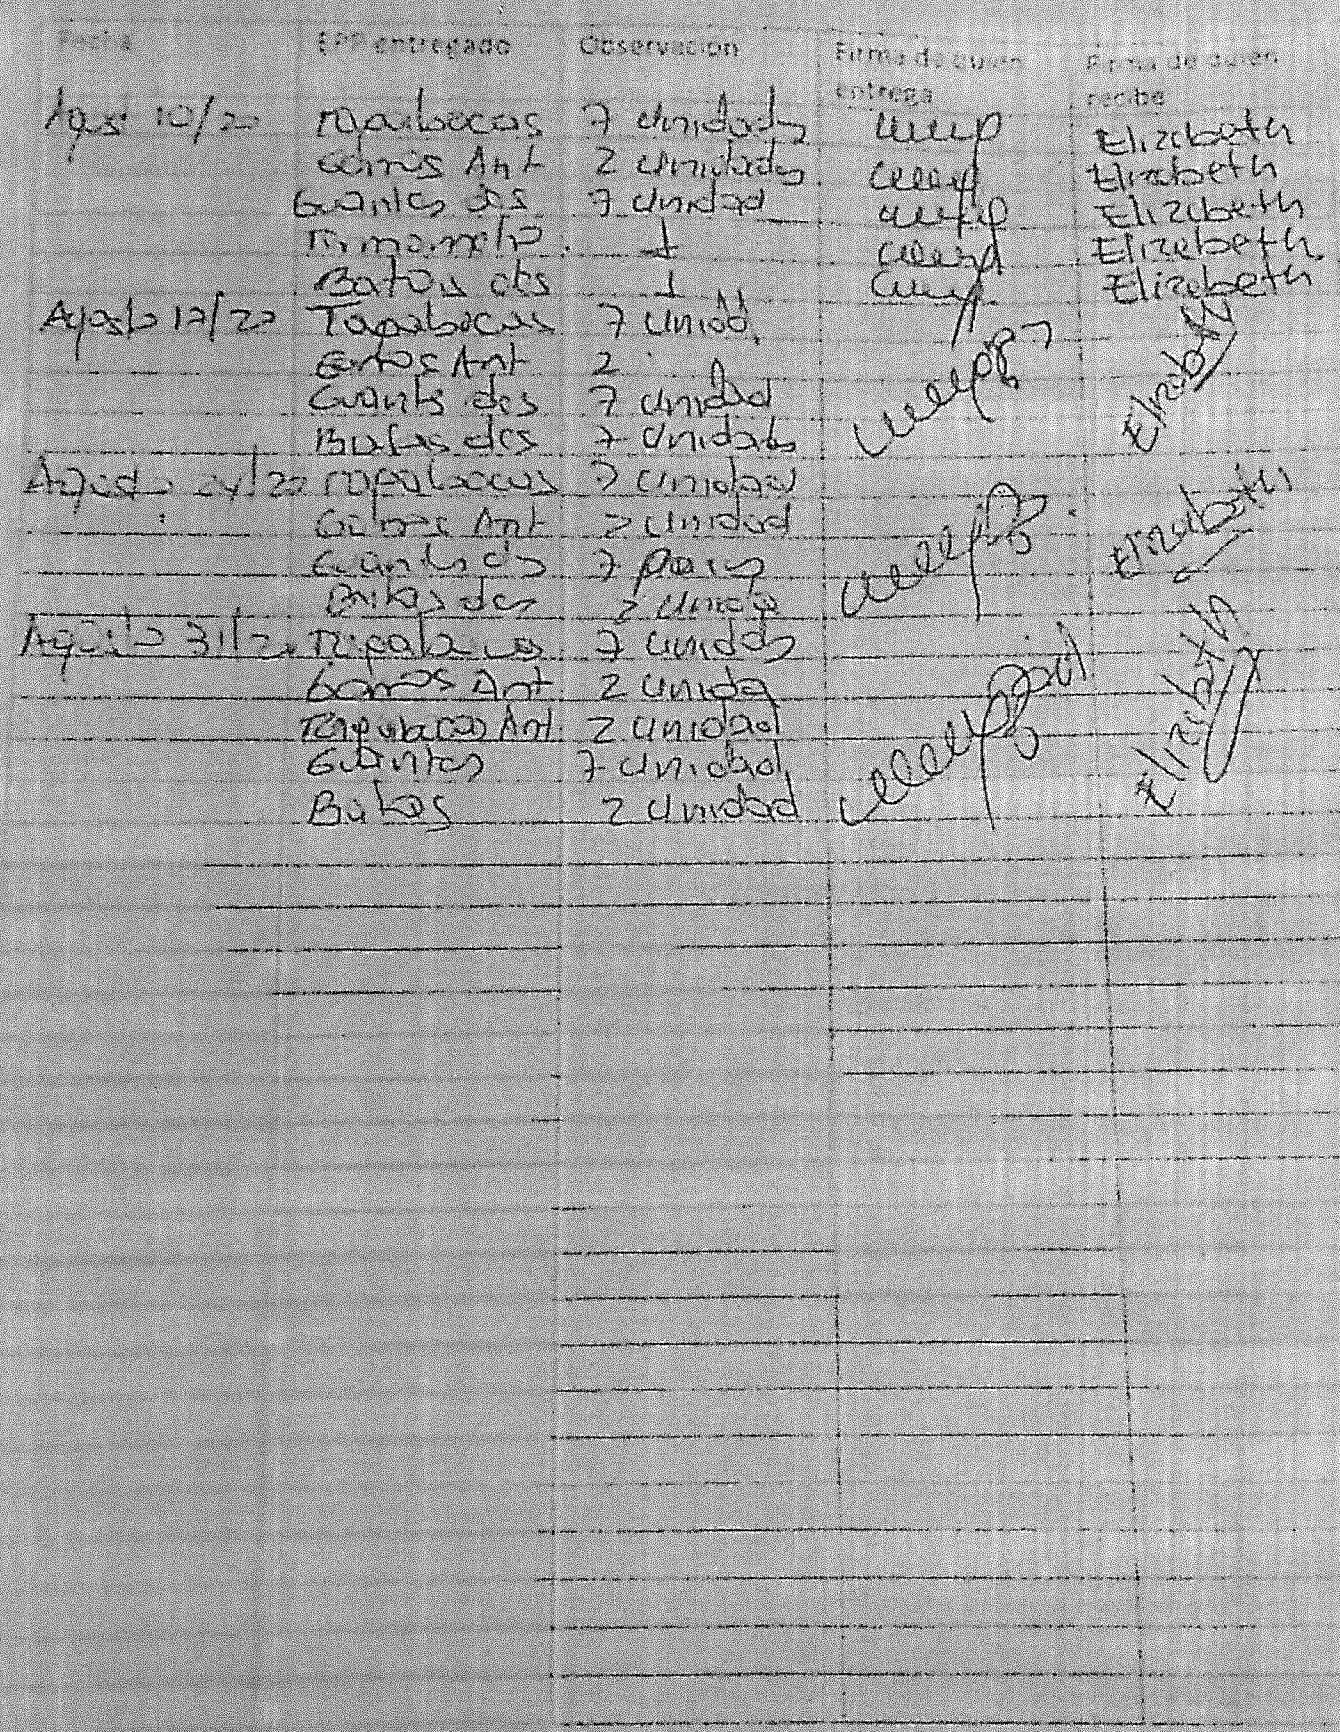 Fecha EPP entregado Observacion Firma de quien entrega Firma de quien recibe
Agos 10/20 Tapabocas 7 Unidades Elizabeth
Gorros Ant 2 Unidades Elizabeth
Guantes des 7 Unidad Elizabeth
1 Elizabeth
Batas des 1 Elizabeth
Agosto 17/20 Tapabocas 7 Unidd Elizabeth
Gorros Ant 2
Guants des 7 Unidad
Batas des 7 Unidads
Agosto 24/20 Tapabocas 7 Unidad Elizabeth
Gorros Ant 2 Unidad
Guantes ds 7 Pares
Batas des 2 Unida
Agosto 31/20 Tapabocas 7 Unidads Elizabeth
Gorros Ant 2 Unida
Tapabocas Ant 2 Unidad
Guantes 7 Unidad
Batas 2 Unidad